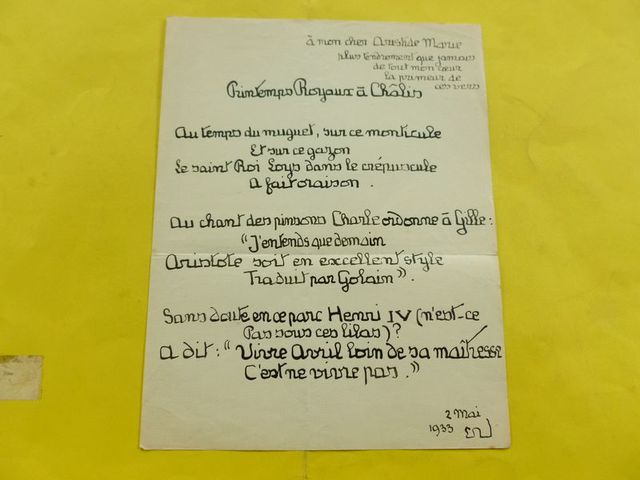 à mon cher Aristide Marie
plus tendrement que jamais
de tout mon cœur
la primeur de
ces vers
Printemps Royaux à Châlis
Au temps du muguet, sur ce monticule
Et sur ce gazon
Le saint Roi Loys dans le crépuscule
A fait oraison.
Au chant des pinsons Charle ordonne à Gille :
"J'entends que demain
Aristote soit en excellent style
Traduit par Golain".
Sans doute en ce parc Henri IV (n'est-ce
Pas sous ces lilas)?
A dit : "Vivre Avril loin de sa maîtresse
C'est ne vivre pas."
2 Mai
1933